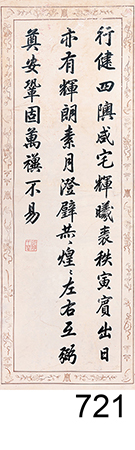 行健四隩咸宅輝曦裘秩寅賓出日
亦有輝朗素月澄璧共〻煌〻左右互弼
奠安鞏固萬禩不易
721